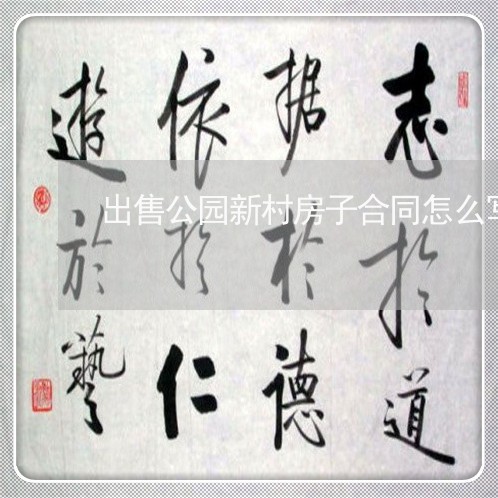 志於道
据於德
依於仁
遊於藝
出售公园新村房子合同怎么写